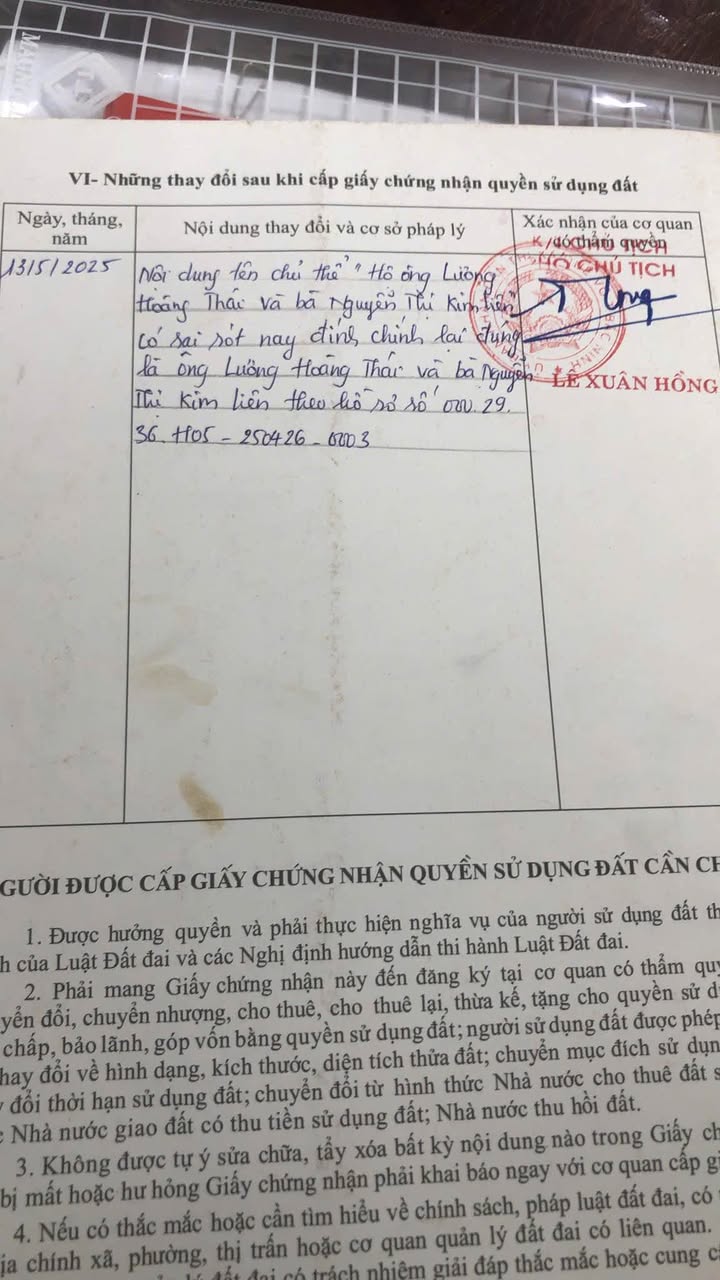 VI- Những thay đổi sau khi cấp giấy chứng nhận quyền sử dụng đất
Ngày, tháng, năm
Nội dung thay đổi và cơ sở pháp lý
Xác nhận của cơ quan có thẩm quyền
13/5/2025
Nội dung tên chủ thể "Hộ ông Lường
Hoàng Thái và bà Nguyễn Thị Kim Liên"
có sai sót nay đính chính lại đúng
là ông Lường Hoàng Thái và bà Nguyễn
Thị Kim Liên theo hồ sơ số 000.29.
36.H05-250426-0003
K/T CHỦ TỊCH
PHÓ CHỦ TỊCH
LÊ XUÂN HỒNG
GƯỜI ĐƯỢC CẤP GIẤY CHỨNG NHẬN QUYỀN SỬ DỤNG ĐẤT CẦN CH
1. Được hưởng quyền và phải thực hiện nghĩa vụ của người sử dụng đất th
h của Luật Đất đai và các Nghị định hướng dẫn thi hành Luật Đất đai.
2. Phải mang Giấy chứng nhận này đến đăng ký tại cơ quan có thẩm quy
yển đổi, chuyển nhượng, cho thuê, cho thuê lại, thừa kế, tặng cho quyền sử d
chấp, bảo lãnh, góp vốn bằng quyền sử dụng đất; người sử dụng đất được phép
hay đổi về hình dạng, kích thước, diện tích thửa đất; chuyển mục đích sử dụn
đổi thời hạn sử dụng đất; chuyển đổi từ hình thức Nhà nước cho thuê đất s
c Nhà nước giao đất có thu tiền sử dụng đất; Nhà nước thu hồi đất.
3. Không được tự ý sửa chữa, tẩy xóa bất kỳ nội dung nào trong Giấy ch
bị mất hoặc hư hỏng Giấy chứng nhận phải khai báo ngay với cơ quan cấp gi
4. Nếu có thắc mắc hoặc cần tìm hiểu về chính sách, pháp luật đất đai, có
ịa chính xã, phường, thị trấn hoặc cơ quan quản lý đất đai có liên quan.
đất đai có trách nhiệm giải đáp thắc mắc hoặc cung c